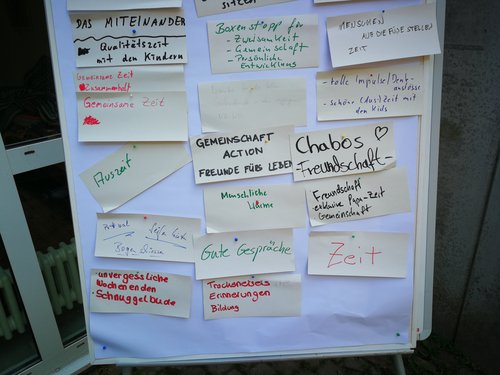 sitzen
DAS MITEINANDER
Qualitätszeit
mit den Kindern
Gemeinsame Zeit
Zusammenhalt
Gemeinsame Zeit
Auszeit
unvergessliche
Wochenenden
Schnuggelbude
Boxenstopp für
- Zweisamkeit
- Gemeinschaft
- Persönliche
Entwicklung
GEMEINSCHAFT
ACTION
FREUNDE FÜRS LEBEN
Menschliche
Wärme
Gute Gespräche
Erinnerungen
Bildung
MENSCHEN
AUF DIE FÜSSE STELLEN
ZEIT
- tolle Impulse/Denk-
anstösse
- schöne (Aus)Zeit mit
den Kids
Chabos ♡
Freundschaft
Freundschaft
exklusive Papa-Zeit
Gemeinschaft
Zeit